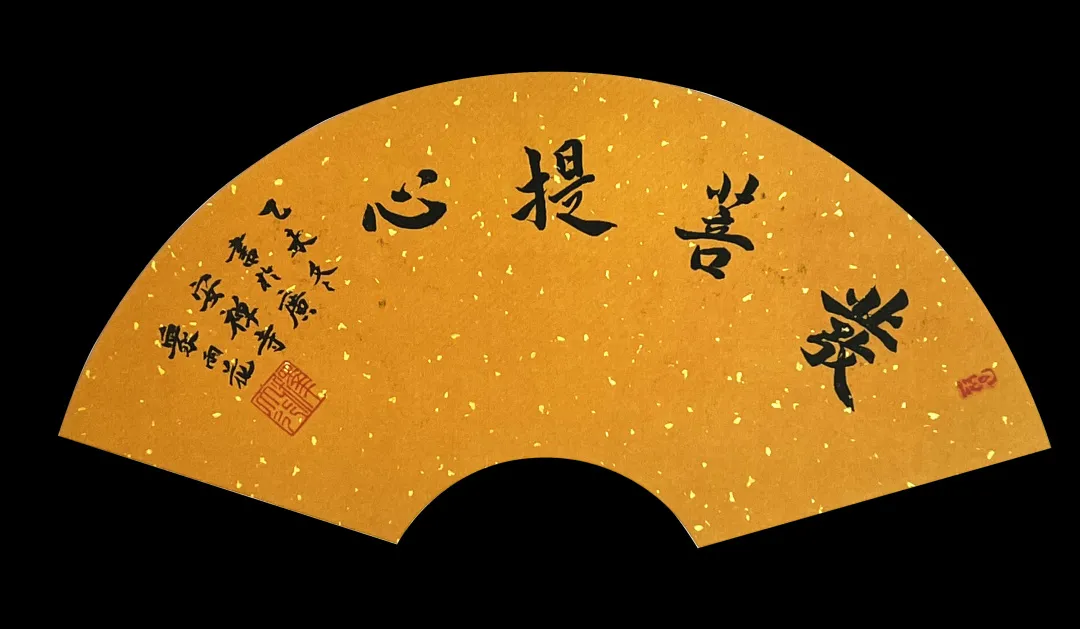 發菩提心
乙未冬
書於廣
安禅寺
雨花